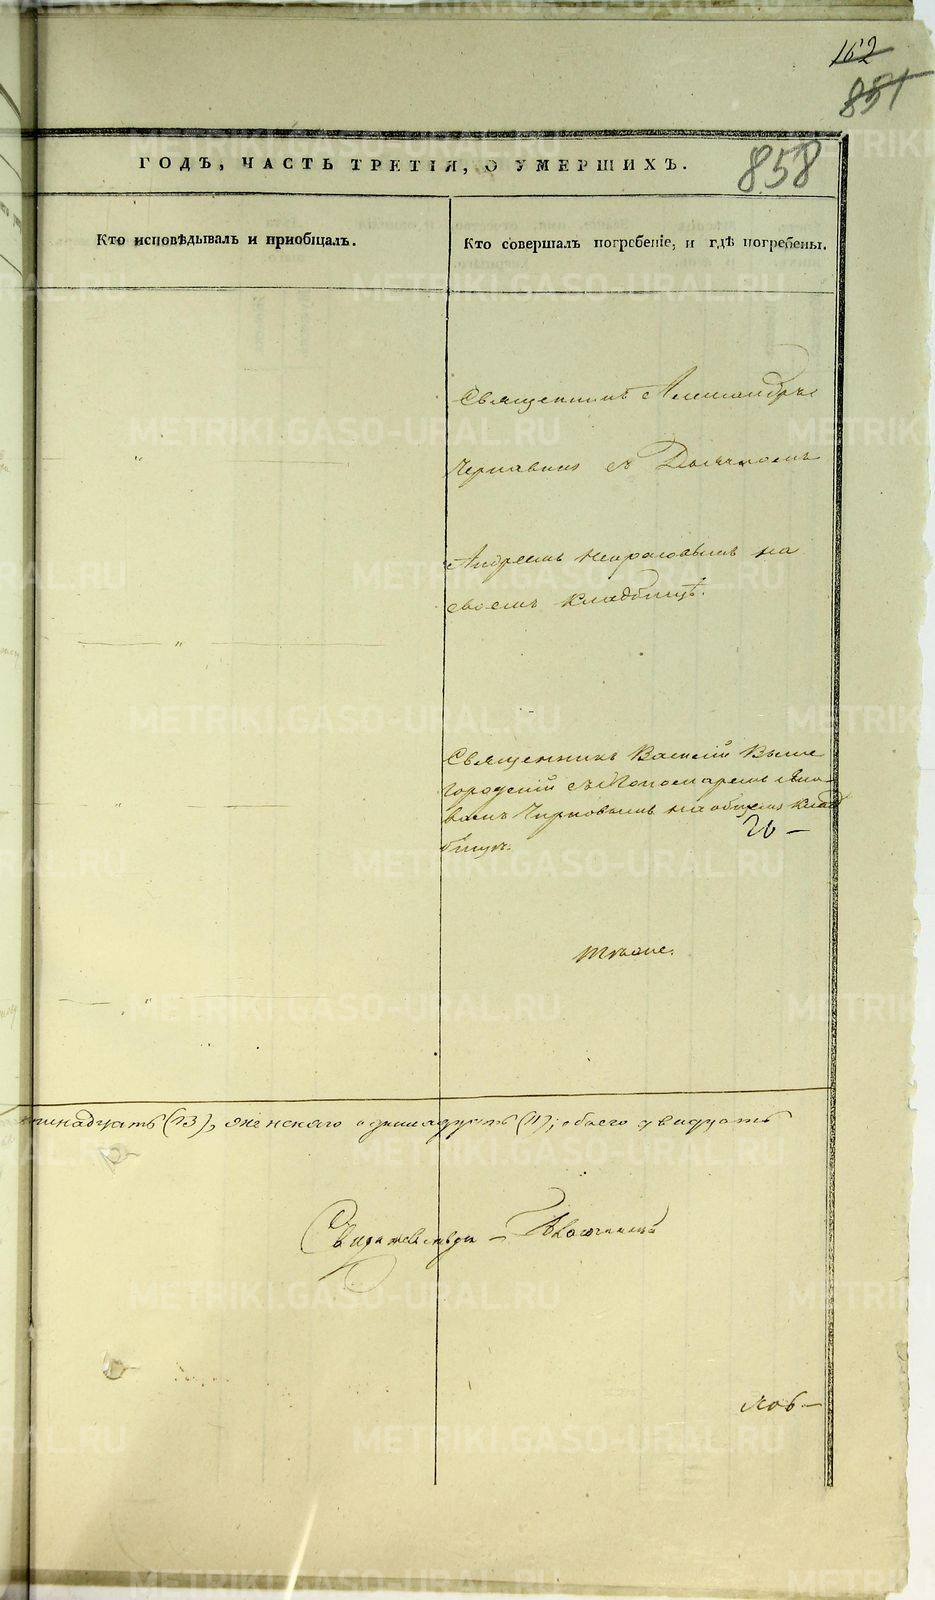 162
851
858
ГОДЪ, ЧАСТЬ ТРЕТІЯ, О УМЕРШИХЪ.
Кто исповѣдывалъ и приобщалъ.
Кто совершалъ погребеніе, и гдѣ погребены.
Священникъ Александръ
Чернавинъ съ Дьячкомъ
Андреемъ Некрасовымъ на
своемъ кладбищѣ.
Священникъ Василій Выше
городскій съ Пономаремъ
Чирковымъ на общемъ клад
бищѣ.
тѣже.
надцать (13), женскаго одинадцать (11); обоего двадцать
METRIKI.GASO-URAL.RU